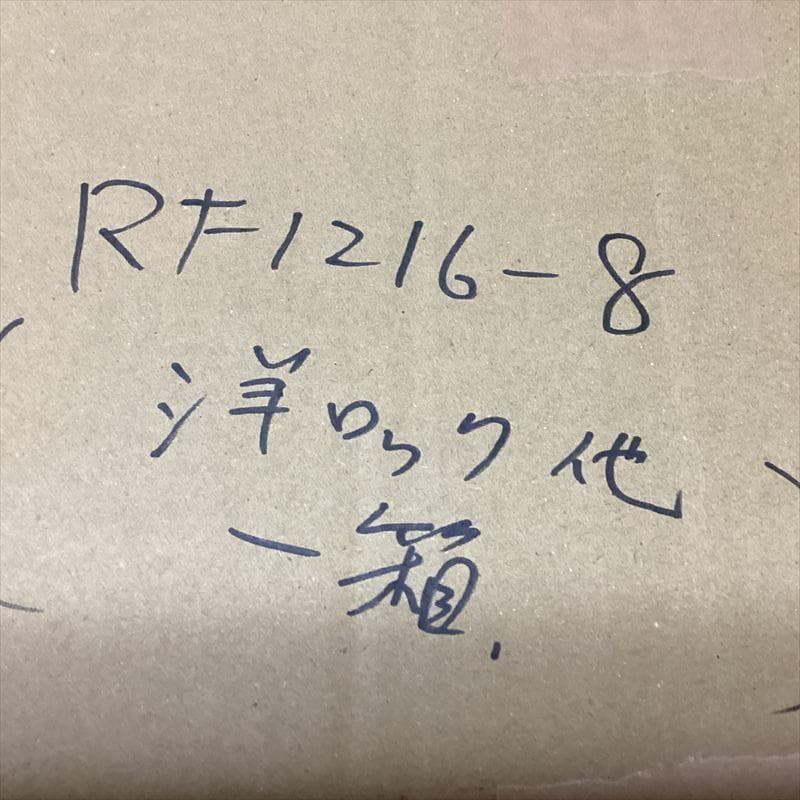 RF1216-8
洋ロック他
一箱.